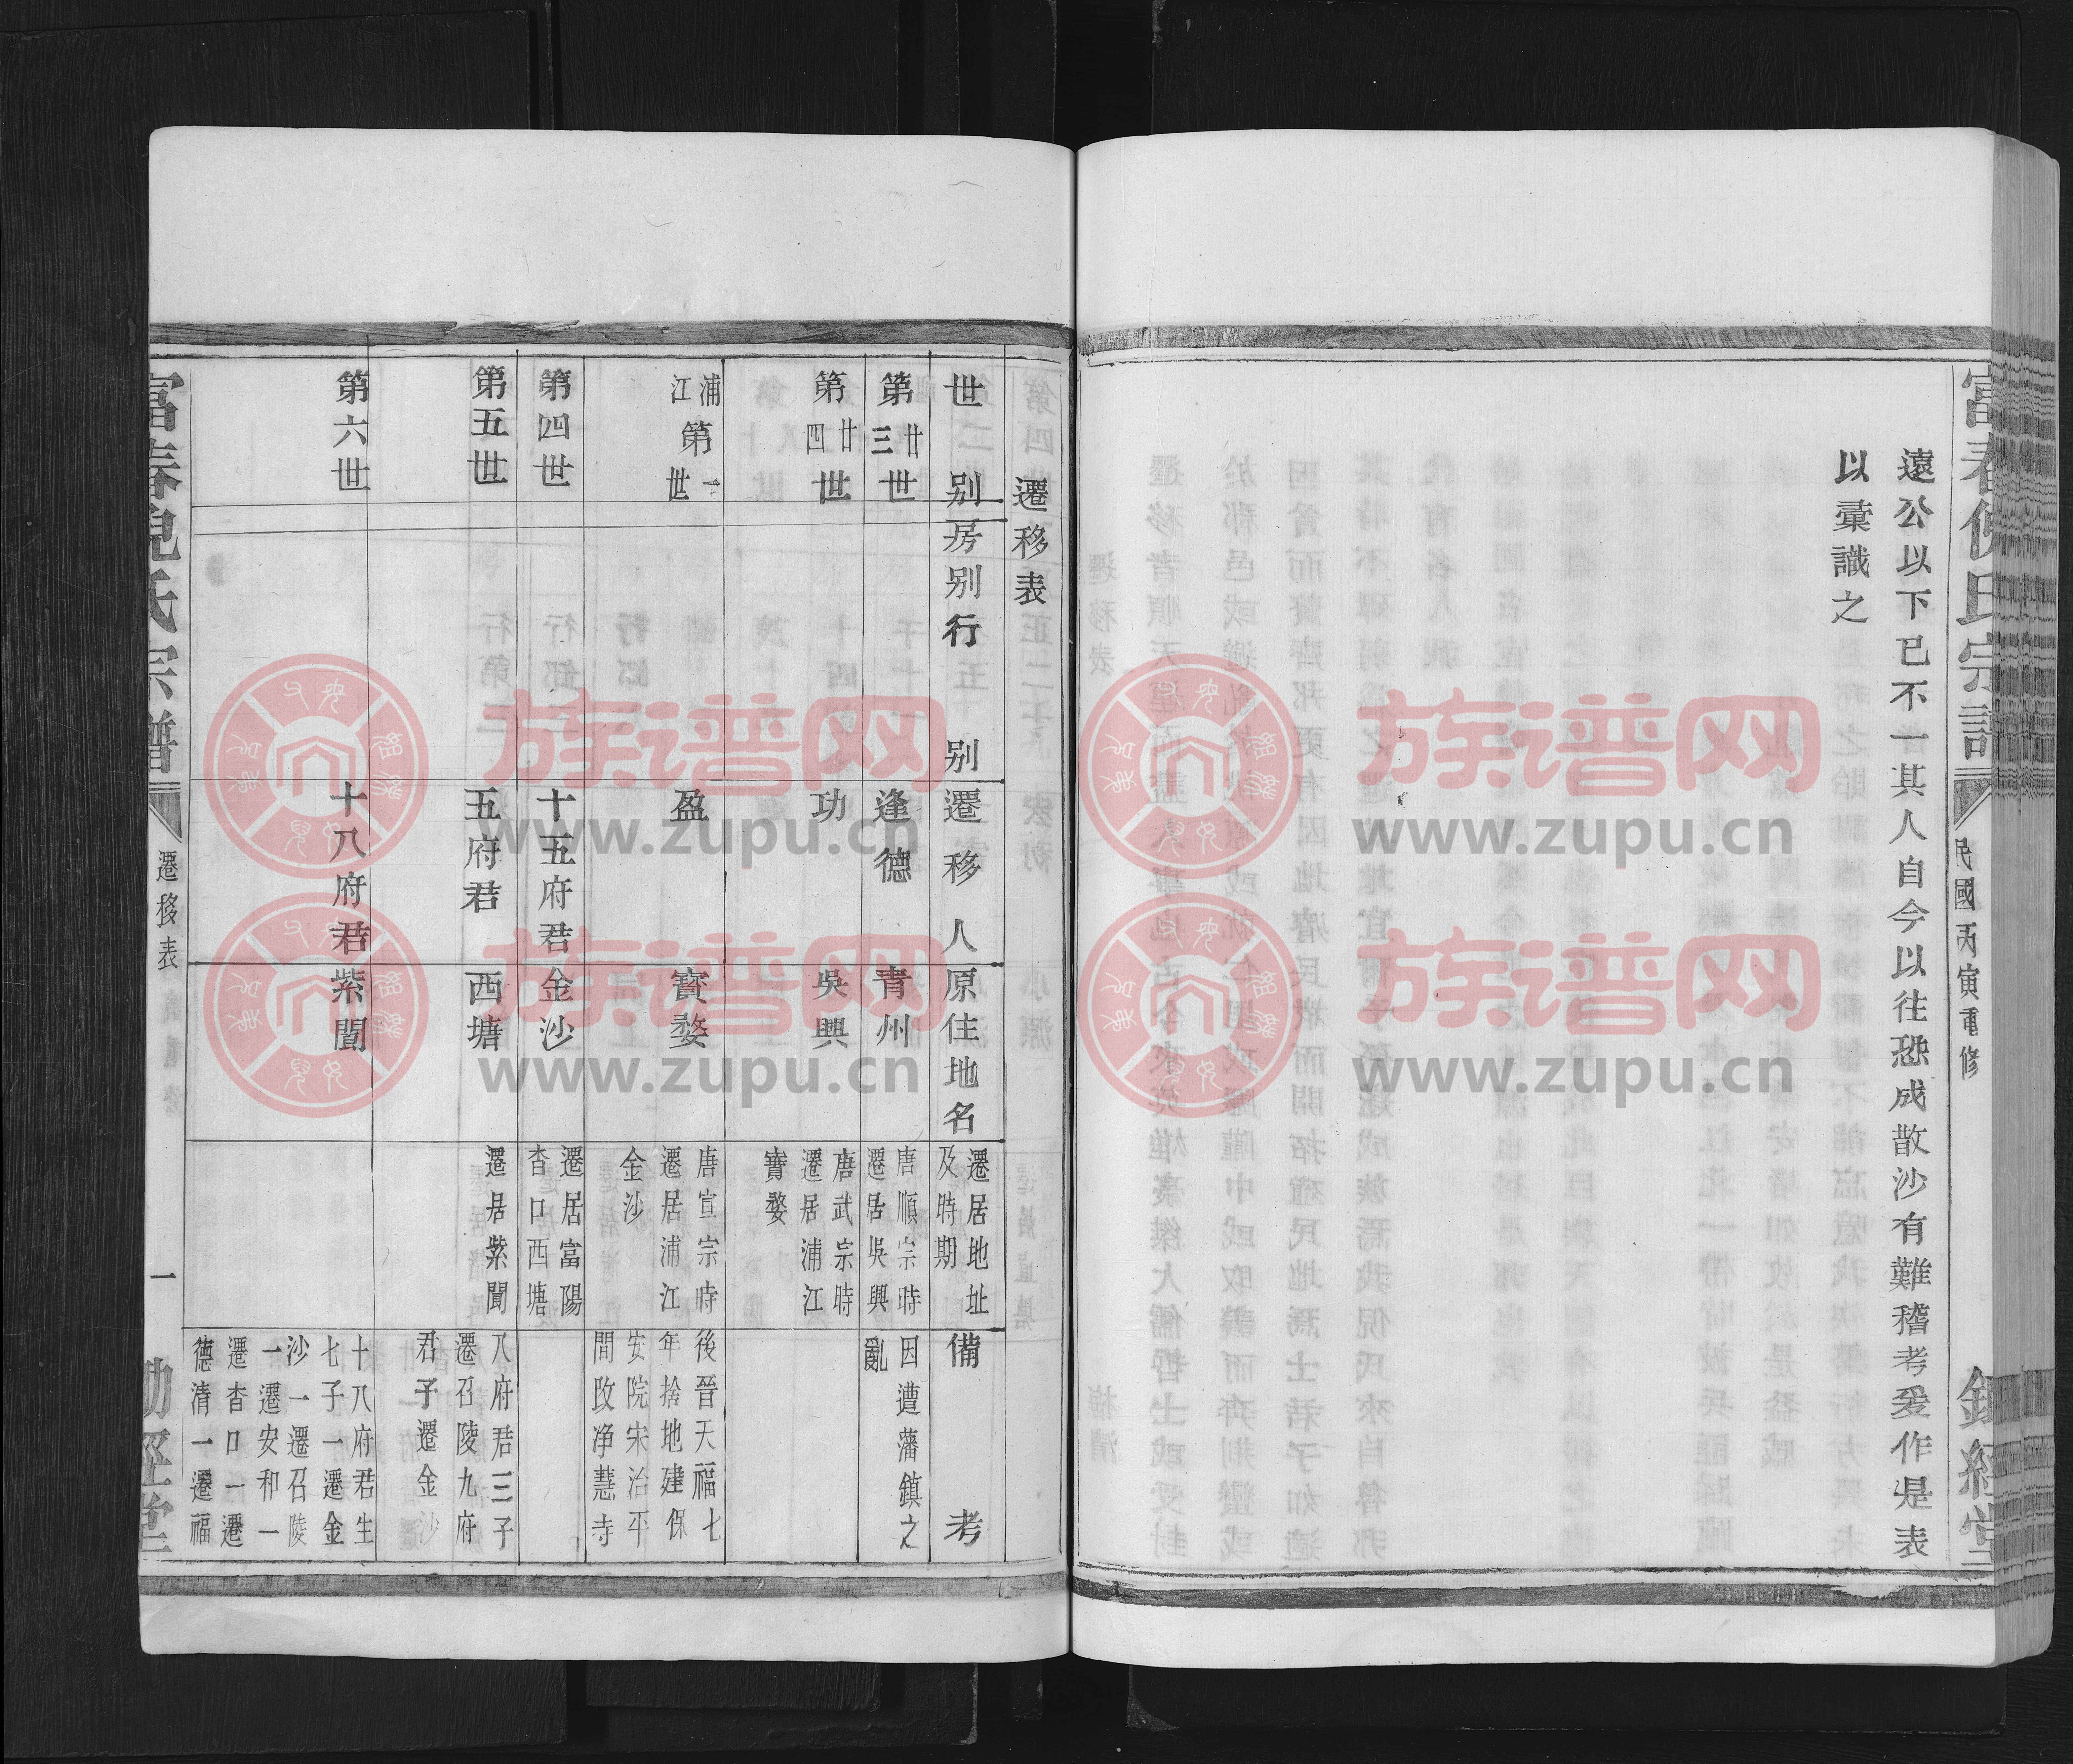 富春倪氏宗譜
民國丙寅重修
鋤經堂
遠公以下已不一其人自今以往恐成散沙有難稽考爰作是表
以彙識之
遷移表
世别
房别
行別
遷移人
原住地名
遷居地址
及時期
備考
第廿三世
逢德
青州
唐順宗時
遷居吳興
因遭藩鎮之
亂
第廿四世
功
吳興
唐武宗時
遷居浦江
寶婺
浦江第一世
盈
寶婺
唐宣宗時
遷居浦江
金沙
後晉天福七
年捨地建保
安院宋治平
間改净慧寺
第四世
十五府君
金沙
遷居富陽
杳口西塘
第五世
五府君
西塘
遷居紫閬
八府君三子
遷召陵九府
君子遷金沙
第六世
十八府君
紫閬
十八府君生
七子一遷金
沙一遷召陵
一遷安和一
遷杳口一遷
德清一遷福
富春倪氏宗譜
遷移表
一
鋤經堂
族谱网
www.zupu.cn
族谱网
www.zupu.cn
族谱网
www.zupu.cn
族谱网
www.zupu.cn